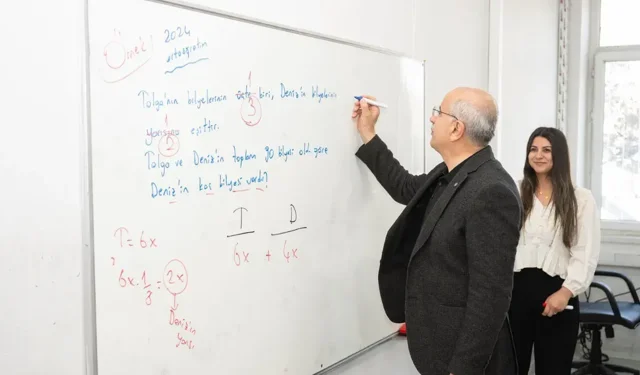 Örnek:
2024
ortaöğretim
Tolga'nın bilyelerinin üçte biri, Deniz'in bilyelerinin
1
3
yarısına eşittir.
1
2
Tolga ve Deniz'in toplam 30 bilyesi olduğuna göre
Deniz'in kaç bilyesi vardır?
T D
6x + 4x
T = 6x
6x . 1/3 = 2x
Deniz'in
yarısı